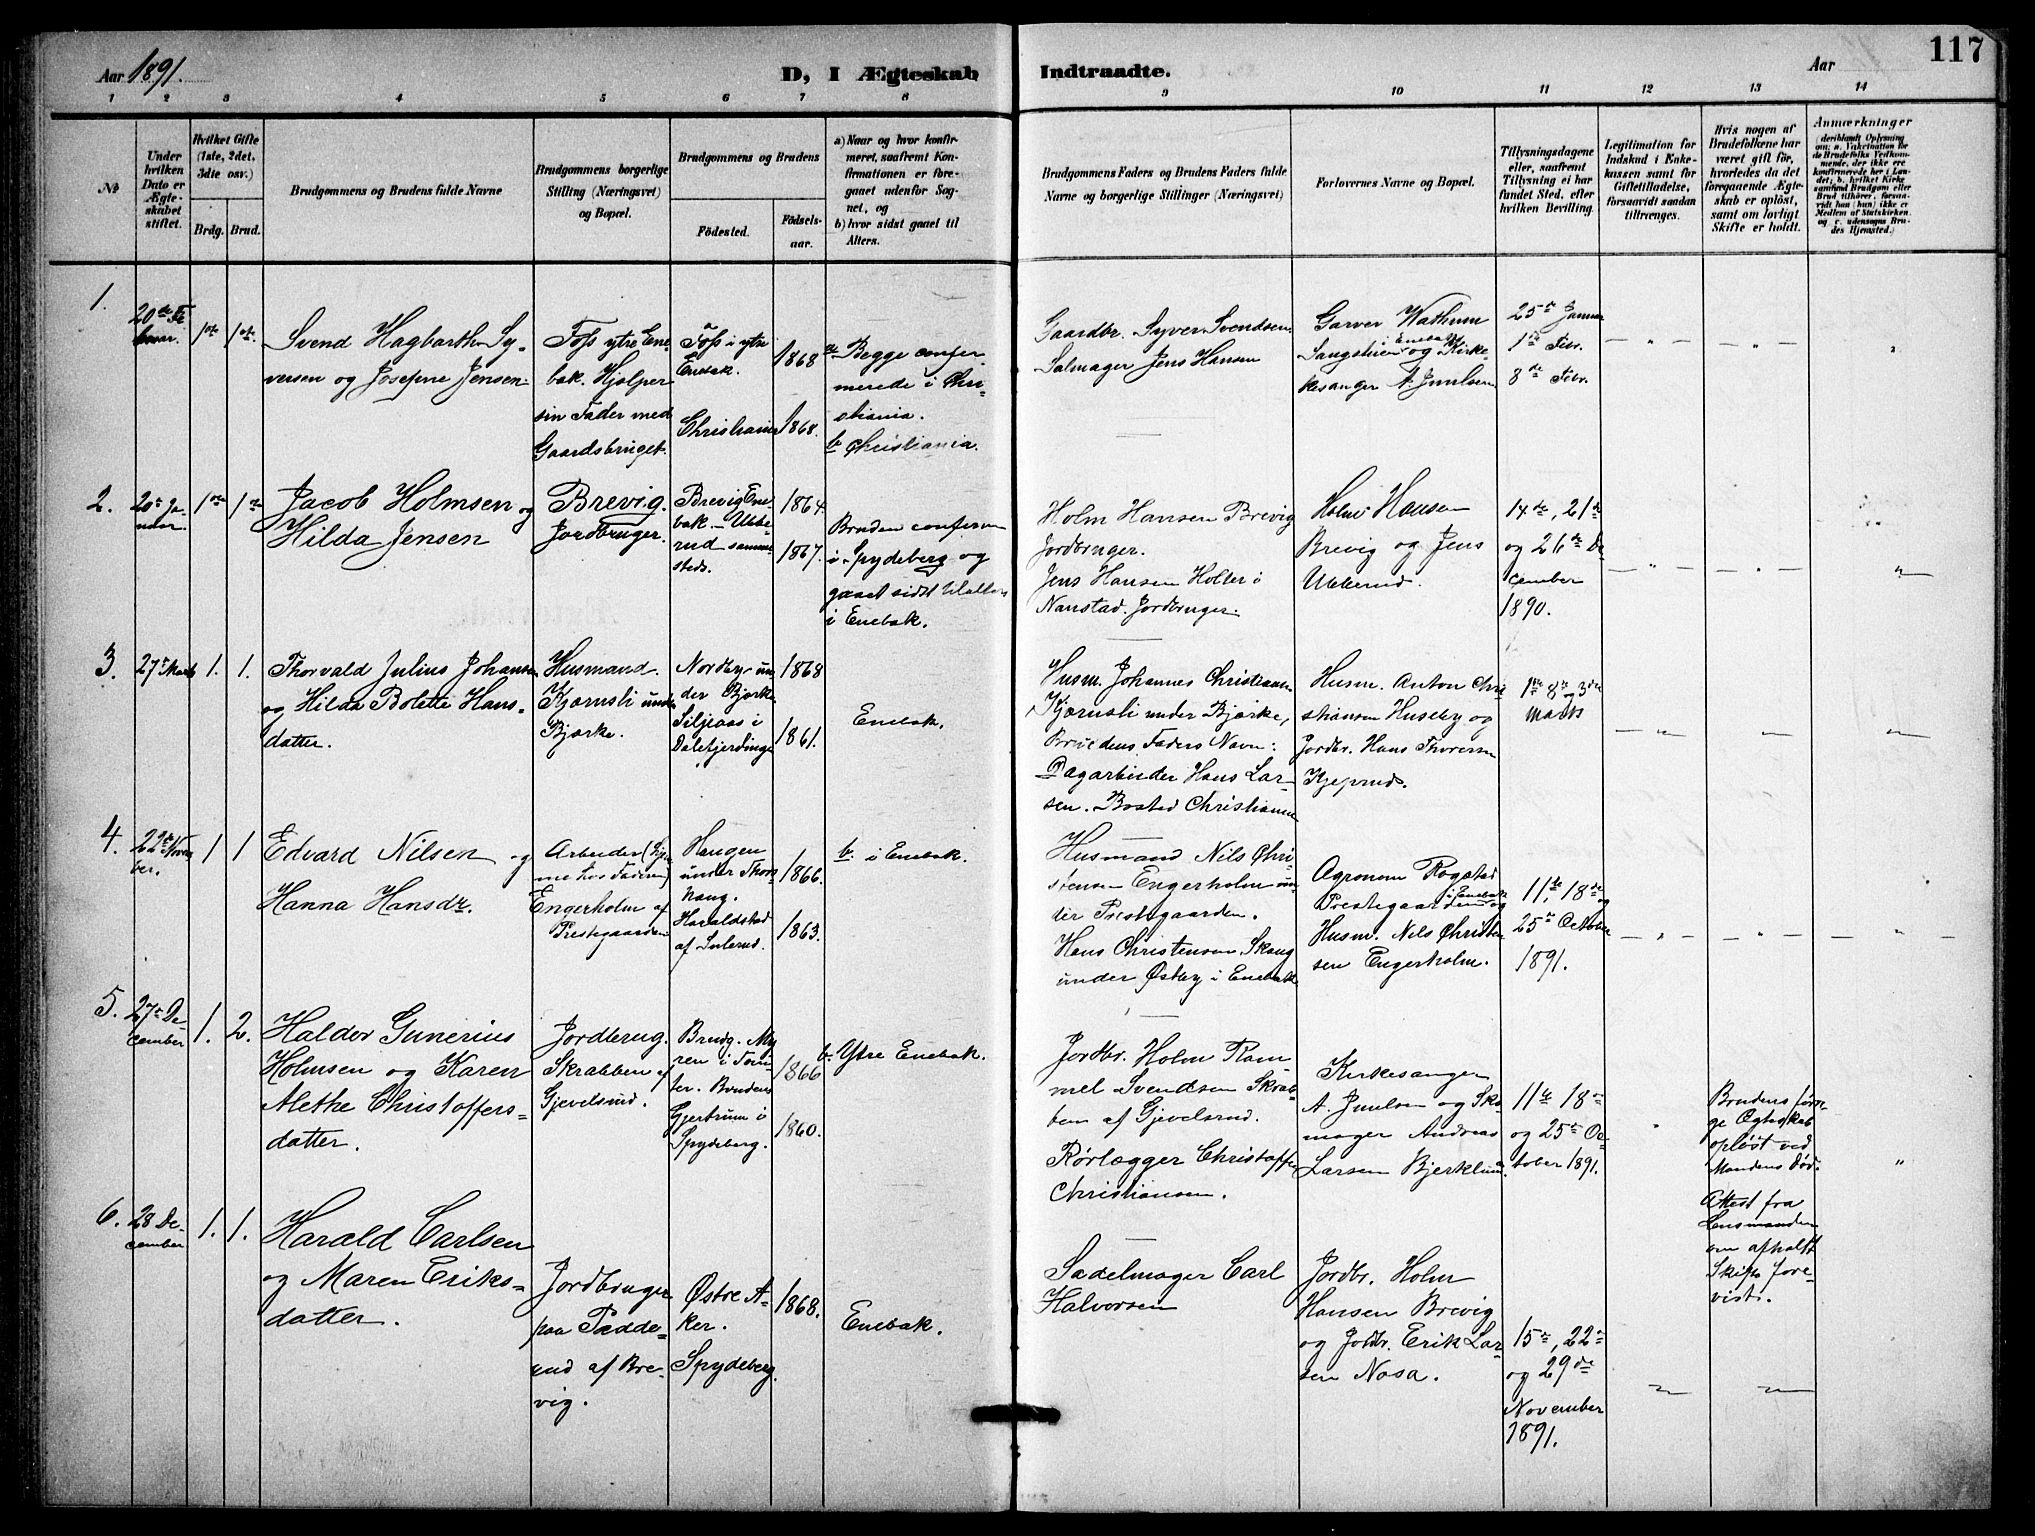 Aar 1891.
D, I Ægteskab
Indtraadte.
Aar
117
1 2 3 4 5 6 7 8 9 10 11 12 13 14
№
Under
hvilken
Dato er
Ægte-
skabet
stiftet.
Hvilket Gifte
(1ste, 2det,
3die osv.)
Brdg. Brud.
Brudgommens og Brudens fulde Navne
Brudgommens borgerlige
Stilling (Næringsvei)
og Bopæl.
Brudgommens og Brudens
Fødested.
Fødsels-
aar.
a) Naar og hvor konfir-
meret, saafremt Kon-
firmationen er fore-
gaaet udenfor Sog-
net, og
b) hvor sidst gaaet til
Alters.
Brudgommens Faders og Brudens Faders fulde
Navne og borgerlige Stillinger (Næringsvei)
Forlovernes Navne og Bopæl.
Tillysningsdagene
eller, saafremt
Tillysning ei har
fundet Sted, efter
hvilken Bevilling.
Legitimation for
Indskud i Enke-
kassen samt for
Giftetilladelse,
forsaavidt saadan
tiltrænges.
Hvis nogen af
Brudefolkene har
været gift før,
hvorledes da det
foregaaende Ægte-
skab er opløst,
samt om lovligt
Skifte er holdt.
Anmærkninger
deriblandt Oplysning
om: a. Vakcination for
de Brudefolks Vedkom-
mende, der ikke ere
konfirmerede her i Lan-
det; b. hvilket Kirke-
samfund Brudgom eller
Brud tilhører, forsaa-
vidt han (hun) ikke er
Medlem af Statskirken,
og c. udensogns Bru-
des Hjemsted.)
1.
20de Fe
bruar.
1ste 1ste
Svend Hagbarth Sy-
versen og Josefine Jensen
Foss ytre Ene-
bak. Hjælper
sin Fader med
Gaardsbruget.
Foss i ytre
Enebak.
Christiania
1868
1868.
a Begge confir
merede i Chri-
stiania.
b Christiania.
Gaardbr. Syver Svendsen
Salmager Jens Hansen
Garver Wathum
Enebak
og Kirke-
kesanger A. Juulsen
25de Januar
1ste Febr.
8de Febr.
2.
20de Ja-
nuar.
1ste 1ste
Jacob Holmsen og
Hilda Jensen
Brevig.
Jordbruger.
Brevig Ene-
bak. Ubbe-
rud samme-
steds.
1864.
1867.
Bruden conferm
i Spydeberg og
gaaet sidst til alters
i Enebak.
Holm Hansen Brevig
Jordbruger.
Jens Hansen Holter i
Nanstad. Jordbruger.
Holm Hansen
Brevig og Jens
Ubberud.
14de, 21de
og 26de De-
cember
1890.
3.
27de Marts
1. 1.
Thorvald Julius Johansen
og Hilda Bolette Hans-
datter.
Husmand
Kjærnsli under
Bjærke.
Nordby un-
der Bjærke
Siljeaas i
Dalefjerdingen
1868
1861.
Enebak.
Husm. Johannes Christiansen
Kjærnsli under Bjærke,
Brudens Faders Navn:
Dagarbeider Hans Lar-
sen. Bosted Christiania
Husm. Anton Chri-
stiansen Huseby og
Jordbr. Hans Thoresen
1ste 8de
Marts
4.
22de Novem
ber.
1 1
Edvard Nilsen og
Hanna Hansdr.
Arbeider (Hjem
me hos Faderen)
Engerholm af
Prestegaarden
Haugen
under Thors-
haug.
Haraldstad
af Sulerud.
1866.
1863.
b. i Enebak.
Husmand Nils Chri-
stensen Engerholm un-
der Prestegaarden.
Hans Christensen Skaug
under Østby i Enebak
Agronom Rogstad
i Enebak
Prestegaarden og
Husm. Nils Christen-
sen Engerholm.
11te, 18de
og
25de October
1891.
5.
27de De-
cember
1. 2.
Haldor Gunerius
Holmsen og Karen
Alethe Christoffers-
datter.
Jordbrug.
Skrabben af
Gjevelsrud.
Brudg. My-
ren i Tom-
ter. Brudens
Gjertrum i
Spydeberg.
1866
1860.
b. Ytre Enebak.
Jordbr. Holm Ram-
mel Svendsen Skrab-
ben af Gjevelsrud.
Rørlægger Christoffer
Christiansen.
Kirkesanger
A. Juulsen og Sko-
mager Andreas
Larsen Bjerklund.
11te 18de
og 25de Oc-
tober 1891.
Brudens forri-
ge Egteskab
opløst ved
Mandens Død.
Attest fra
Lensmanden
om afholdt
Skifte fore-
vist.
6.
28 De-
cember
1. 1.
Harald Carlsen
og Maren Eriks-
datter.
Jordbruger
paa Padde-
rud af Bre-
vig.
Østre A-
ker.
Spydeberg.
1868.
Enebak.
Sadelmager Carl
Halvorsen
Jordbr. Holm
Hansen Brevig
og Jordbr. Erik Lar-
sen Nosa.
15de, 22de
og 29de
November
1891.